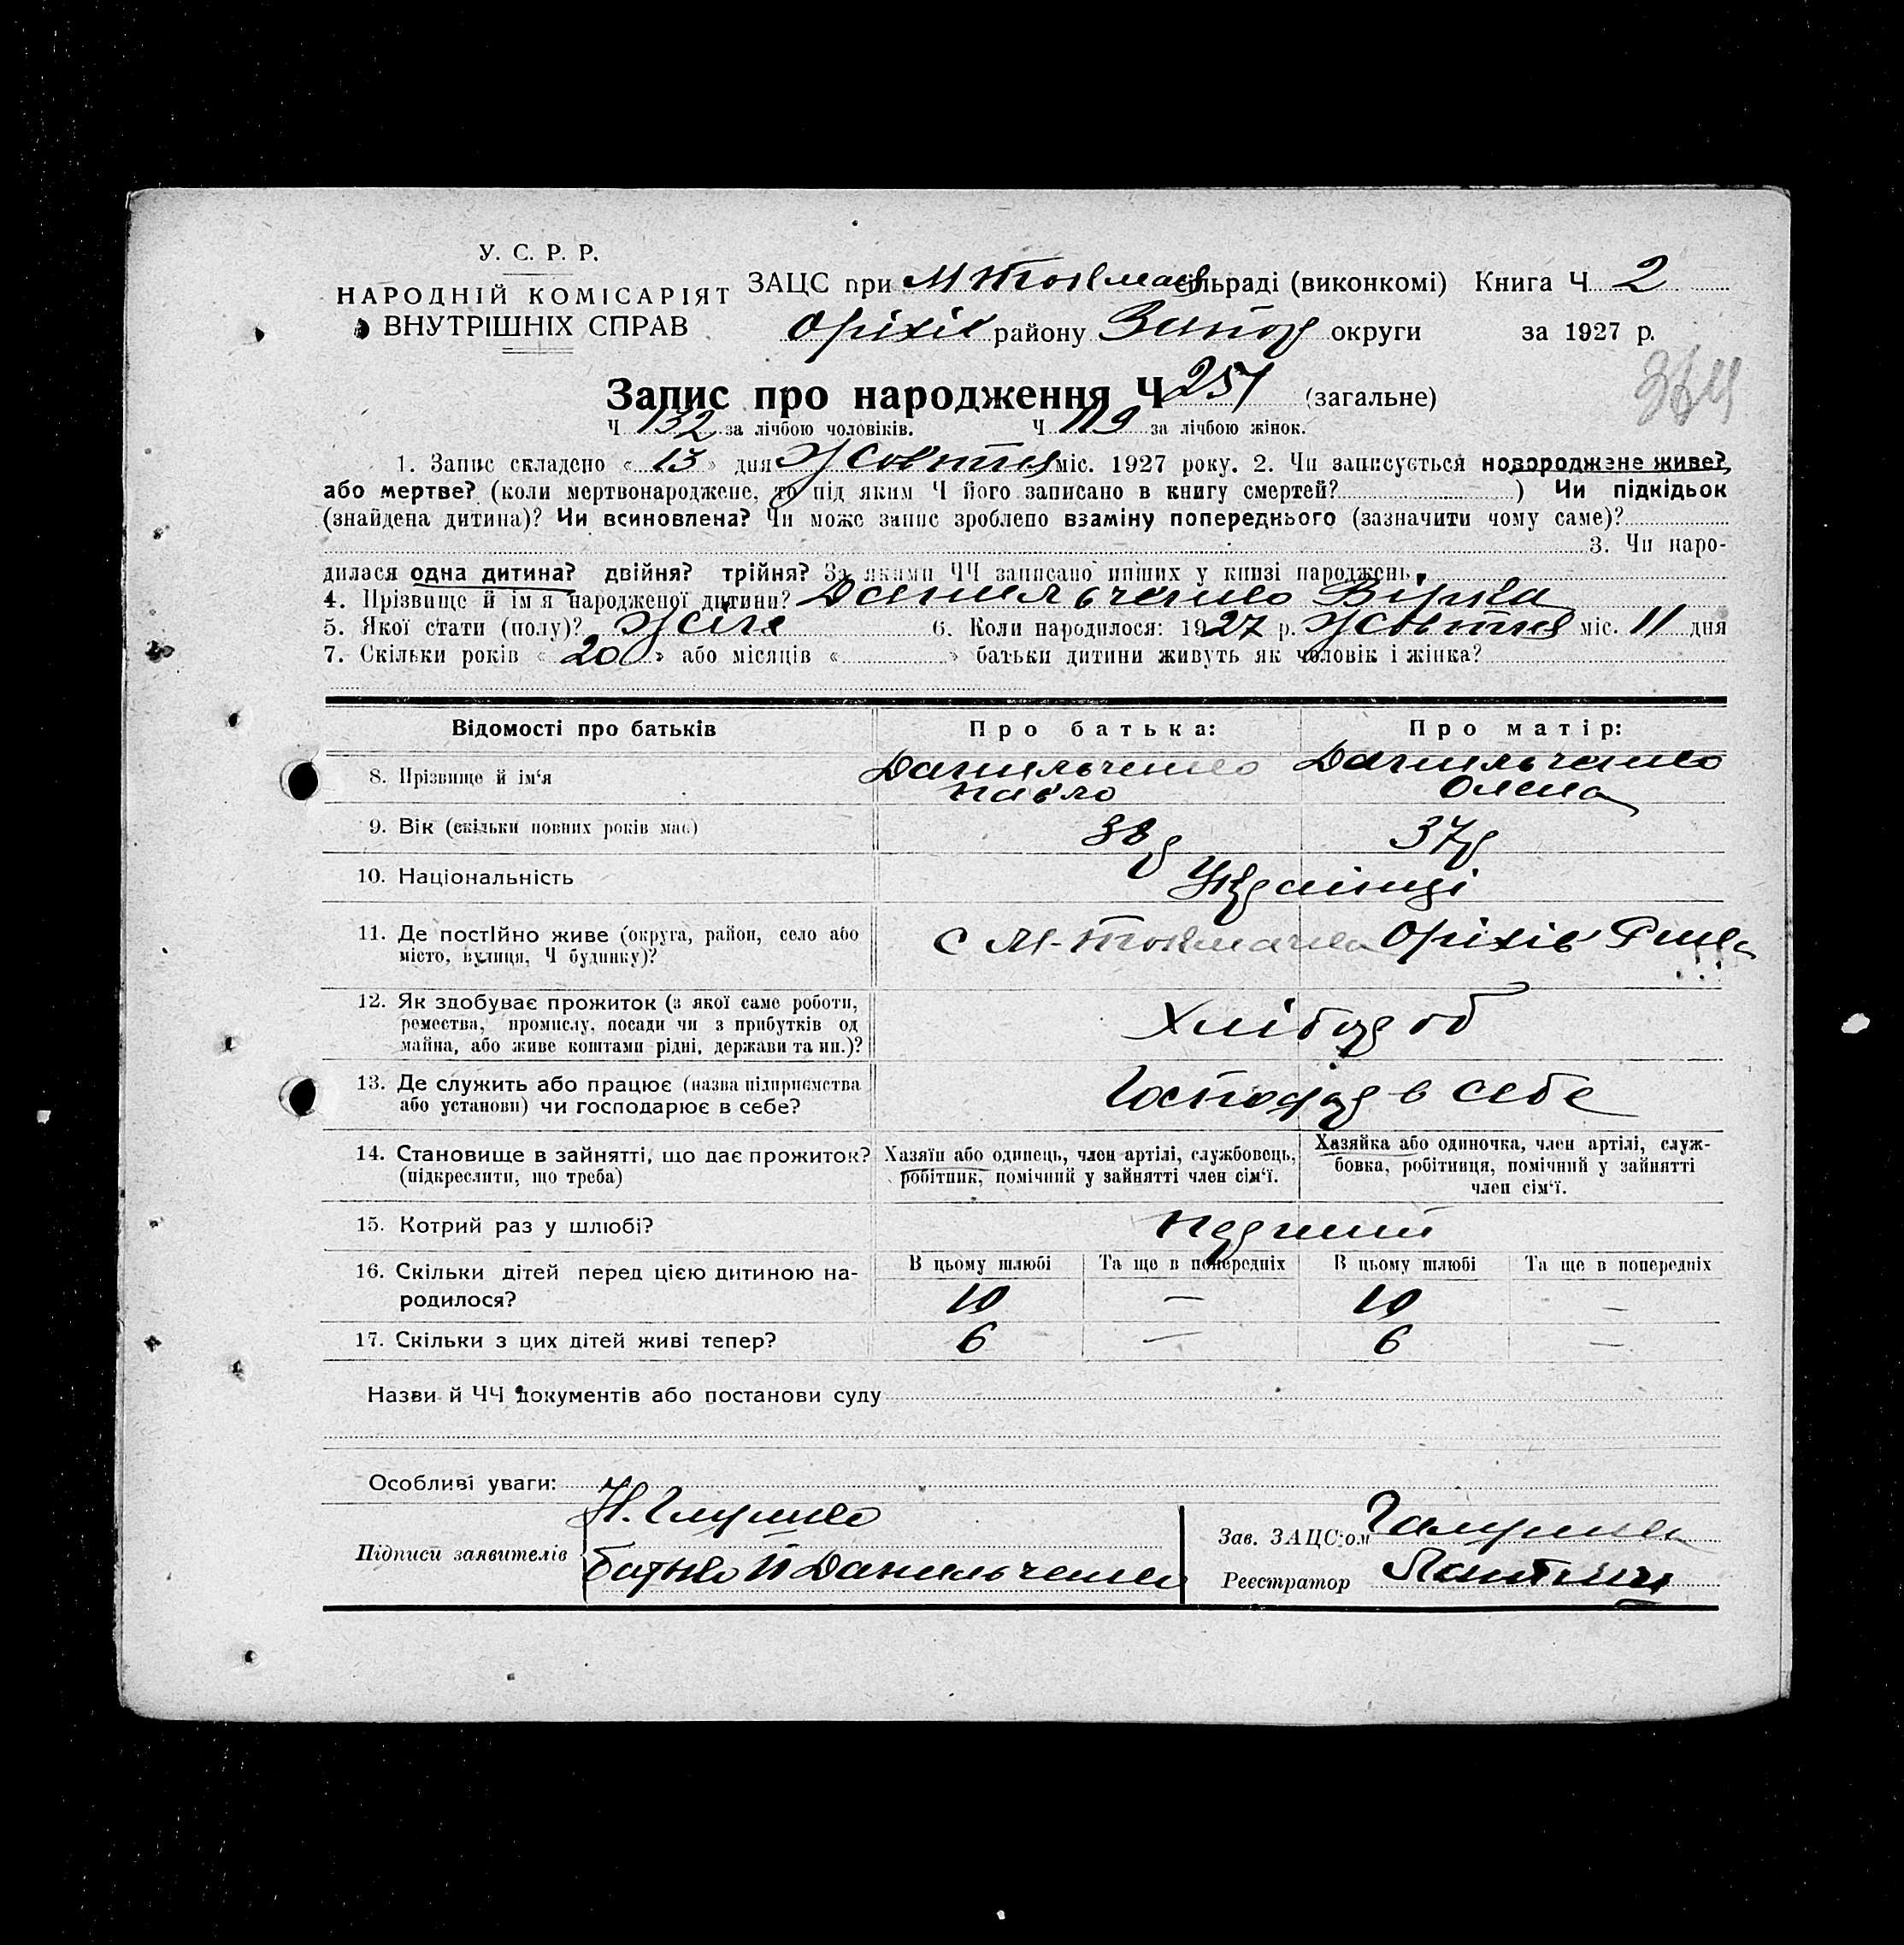 У. С. Р. Р.
НАРОДНІЙ КОМІСАРІЯТ
ВНУТРІШНІХ СПРАВ
ЗАЦС при М Токмац сільраді (виконкомі) Книга Ч 2
Оріхів району Запор округи за 1927 р.
364
Запис про народження Ч 251 (загальне)
Ч 132 за лічбою чоловіків. Ч 119 за лічбою жінок.
1. Запис складено « 13 » дня Жовтня міс. 1927 року. 2. Чи записується новороджене живе?,
або мертве? (коли мертвонароджене, то під яким Ч його записано в книгу смертей? ) Чи підкідьок
(знайдена дитина)? Чи всиновлена? Чи може запис зроблено взаміну попереднього (зазначити чому саме)?
3. Чи наро-
дилася одна дитина? двійня? трійня? За якими ЧЧ записано инших у книзі народжень
4. Прізвище й ім я народженої дитини? Данильченко Вірка
5. Якої стати (полу)? Жіно 6. Коли народилося: 1927 р. Жовтня міс. 11 дня
7. Скільки років « 20 » або місяців « » батьки дитини живуть як чоловік і жінка?
Відомості про батьків Про батька: Про матір:
8. Прізвище й ім'я Данильченко Павло Данильченко Олена
9. Вік (скільки повних років має) 38 р 37 р
10. Національність Українці
11. Де постійно живе (округа, район, село або
місто, вулиця, Ч будинку)? с М-Токмачка Оріхів Р-на
12. Як здобуває прожиток (з якої саме роботи,
ремества, промислу, посади чи з прибутків од
майна, або живе коштами рідні, держави та ин.)? Хлібороб
13. Де служить або працює (назва підприємства
або установи) чи господарює в себе? Господар в себе
14. Становище в зайнятті, що дає прожиток?
(підкреслити, що треба)
Хазяїн або одинець, член артілі, службовець,
робітник, помічний у зайнятті член сім'ї.
Хазяйка або одиночка, член артілі, служ-
бовка, робітниця, помічний у зайнятті
член сім'ї.
15. Котрий раз у шлюбі? перший
16. Скільки дітей перед цією дитиною на-
родилося?
В цьому шлюбі Та ще в попередніх В цьому шлюбі Та ще в попередніх
10 — 10 —
17. Скільки з цих дітей живі тепер? 6 — 6 —
Назви й ЧЧ документів або постанови суду
Особливі уваги:
Підписи заявителів
батько П Данильченко
Зав. ЗАЦС'ом
Реєстратор